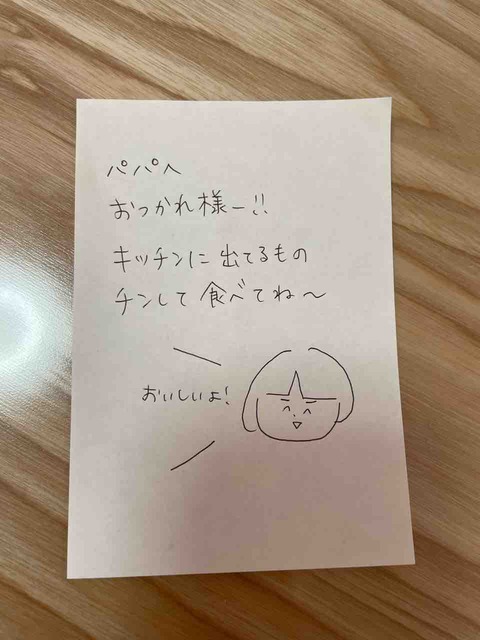 パパへ
おつかれ様ー!!
キッチンに出てるもの
チンして食べてね〜
おいしいよ!